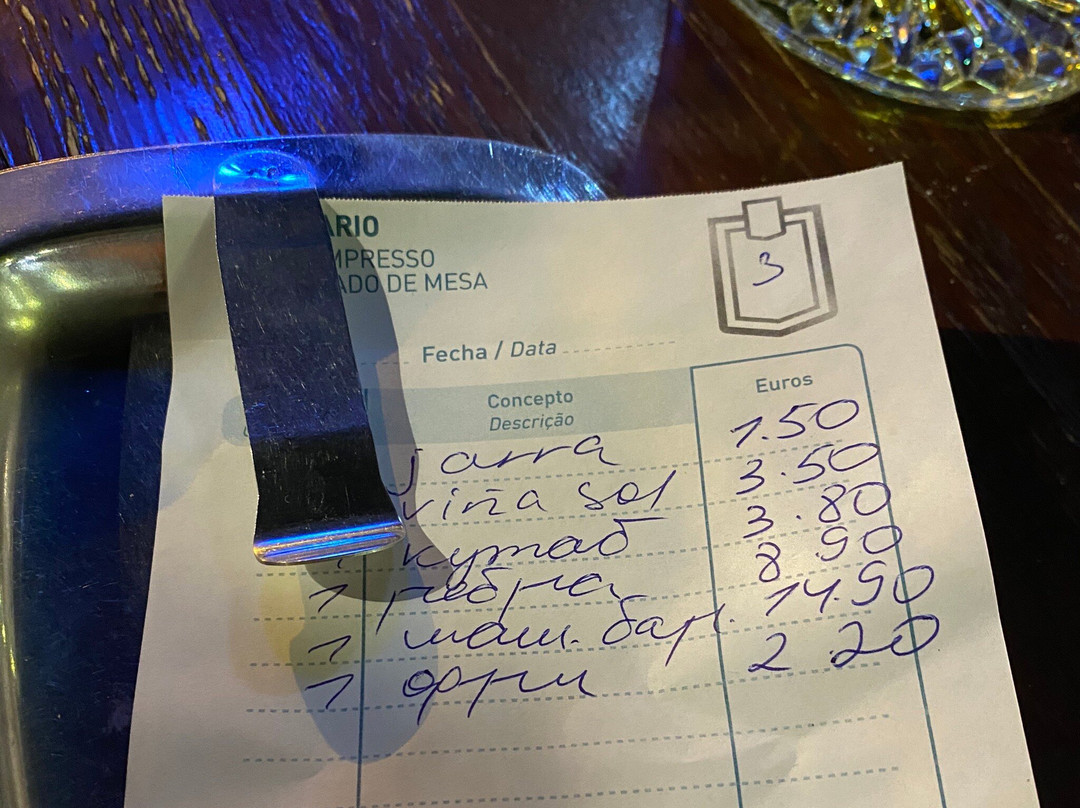 ARIO
MPRESSO
ADO DE MESA
3
Fecha / Data
Concepto
Descrição
Euros
jarra 1.50
viña sol 3.50
1 кутаб 3.80
1 ребра 8.90
1 шаш. бар. 14.90
1 фри 2.20